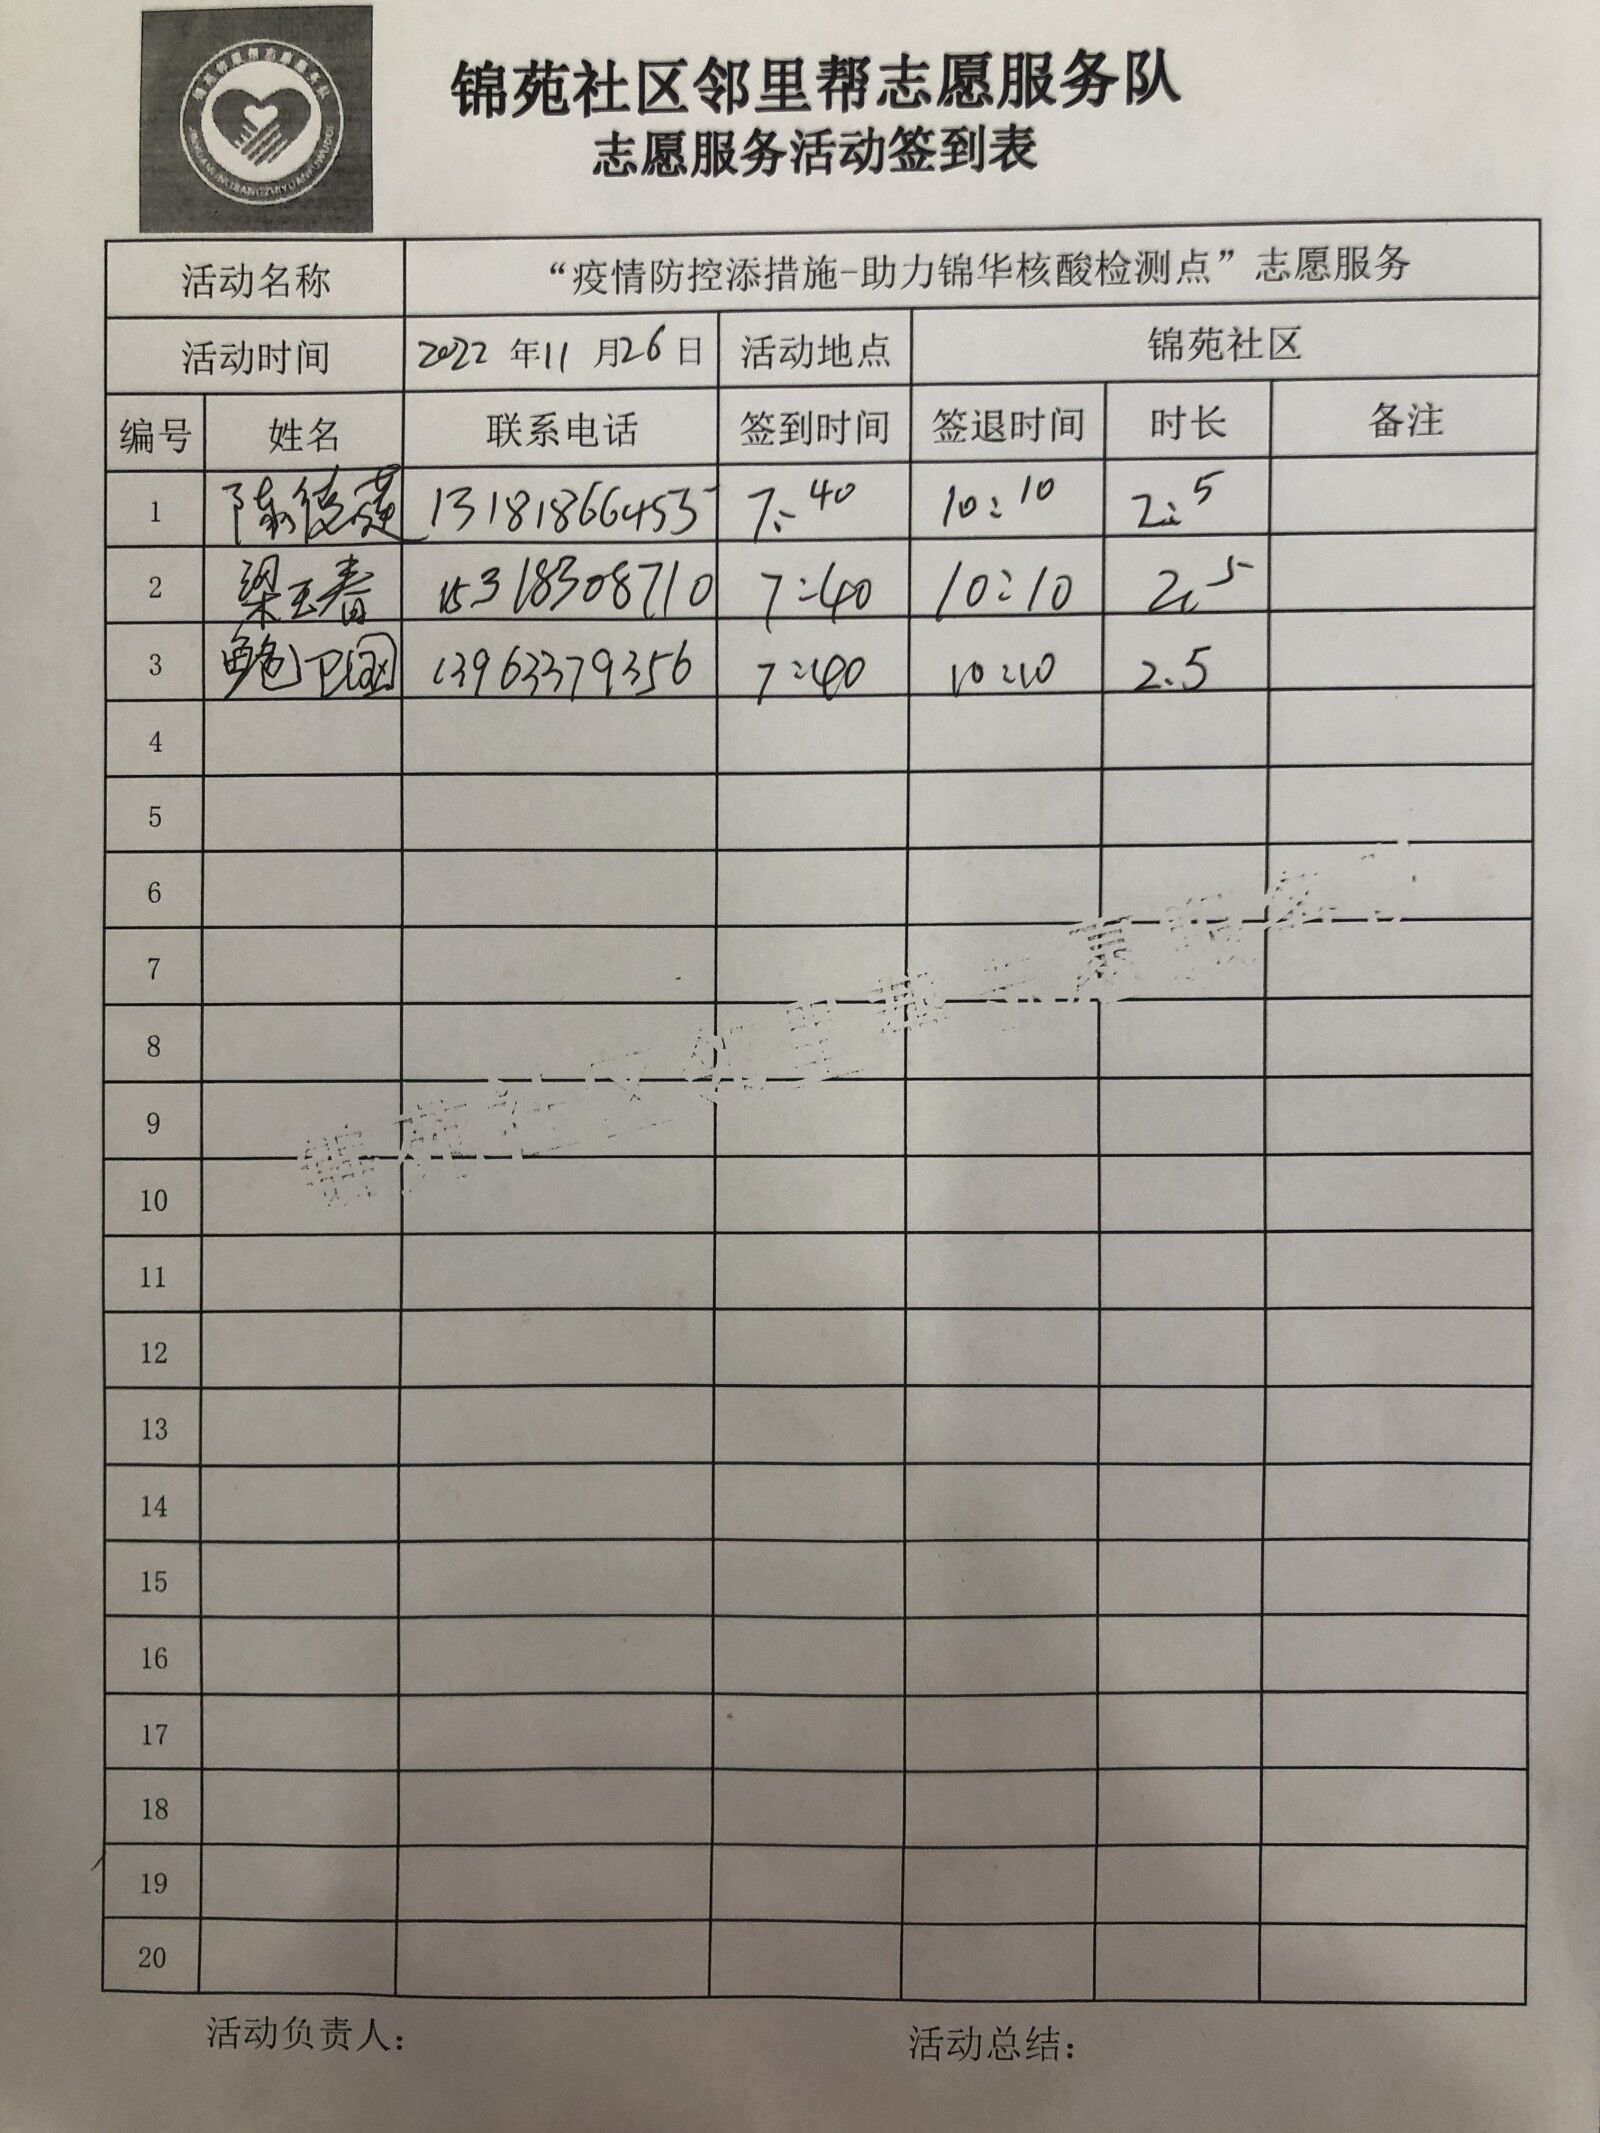 锦苑社区邻里帮志愿服务队
志愿服务活动签到表
活动名称 “疫情防控添措施-助力锦华核酸检测点”志愿服务
活动时间 2022 年 11 月 26 日 活动地点 锦苑社区
编号 姓名 联系电话 签到时间 签退时间 时长 备注
1 陈德莲 13181866453 7:40 10:10 2.5
2 梁玉春 15318308710 7:40 10:10 2.5
3 鲍卫国 13963379356 7:40 10:10 2.5
4
5
6
7
8
9
10
11
12
13
14
15
16
17
18
19
20
锦苑社区邻里帮志愿服务队
活动负责人: 活动总结: